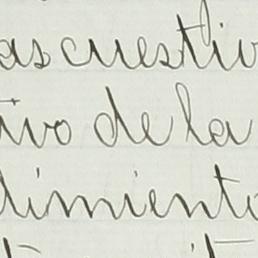 as cuestio
tivo de la
dimiento